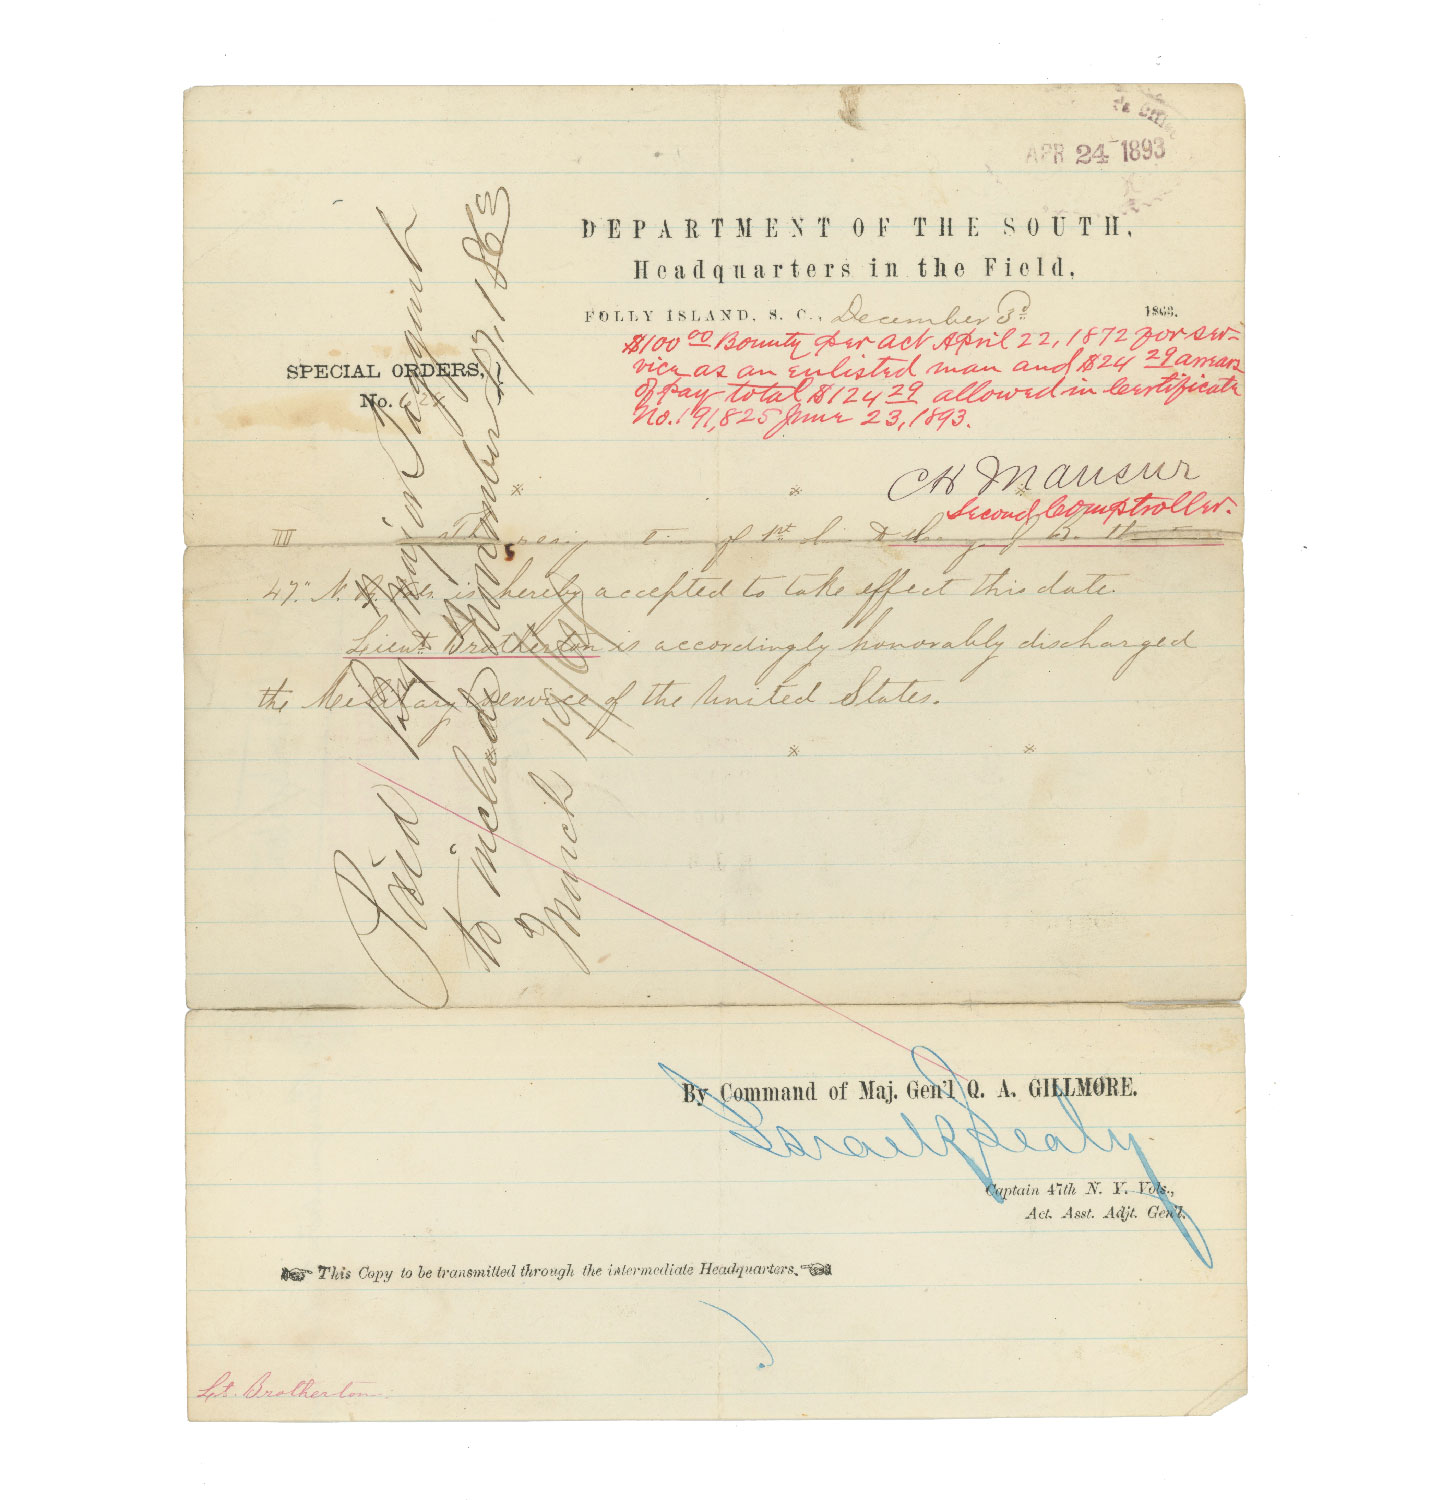 APR 24 1893
DEPARTMENT OF THE SOUTH,
Headquarters in the Field,
FOLLY ISLAND, S. C., December 3d 1863.
$100 00 Bounty per act April 22, 1872 for ser-
vice as an enlisted man and $24 29 arrears
of pay total $124 29 allowed in Certificate
No. 191,825 June 23, 1893.
SPECIAL ORDERS,
No.
CH Mansur
Second Comptroller.
III The of 1st
47" N. Y. Vols. is hereby accepted to take effect this date.
Lieut Brotherton is accordingly honorably discharged
the Military Service of the United States.
Paid By Major Taggart
to include November 1863
By Command of Maj. Gen'l Q. A. GILLMORE.
Israel R Sealy
Captain 47th N. Y. Vols.,
Act. Asst. Adjt. Gen'l.
This Copy to be transmitted through the intermediate Headquarters.
Lt. Brotherton